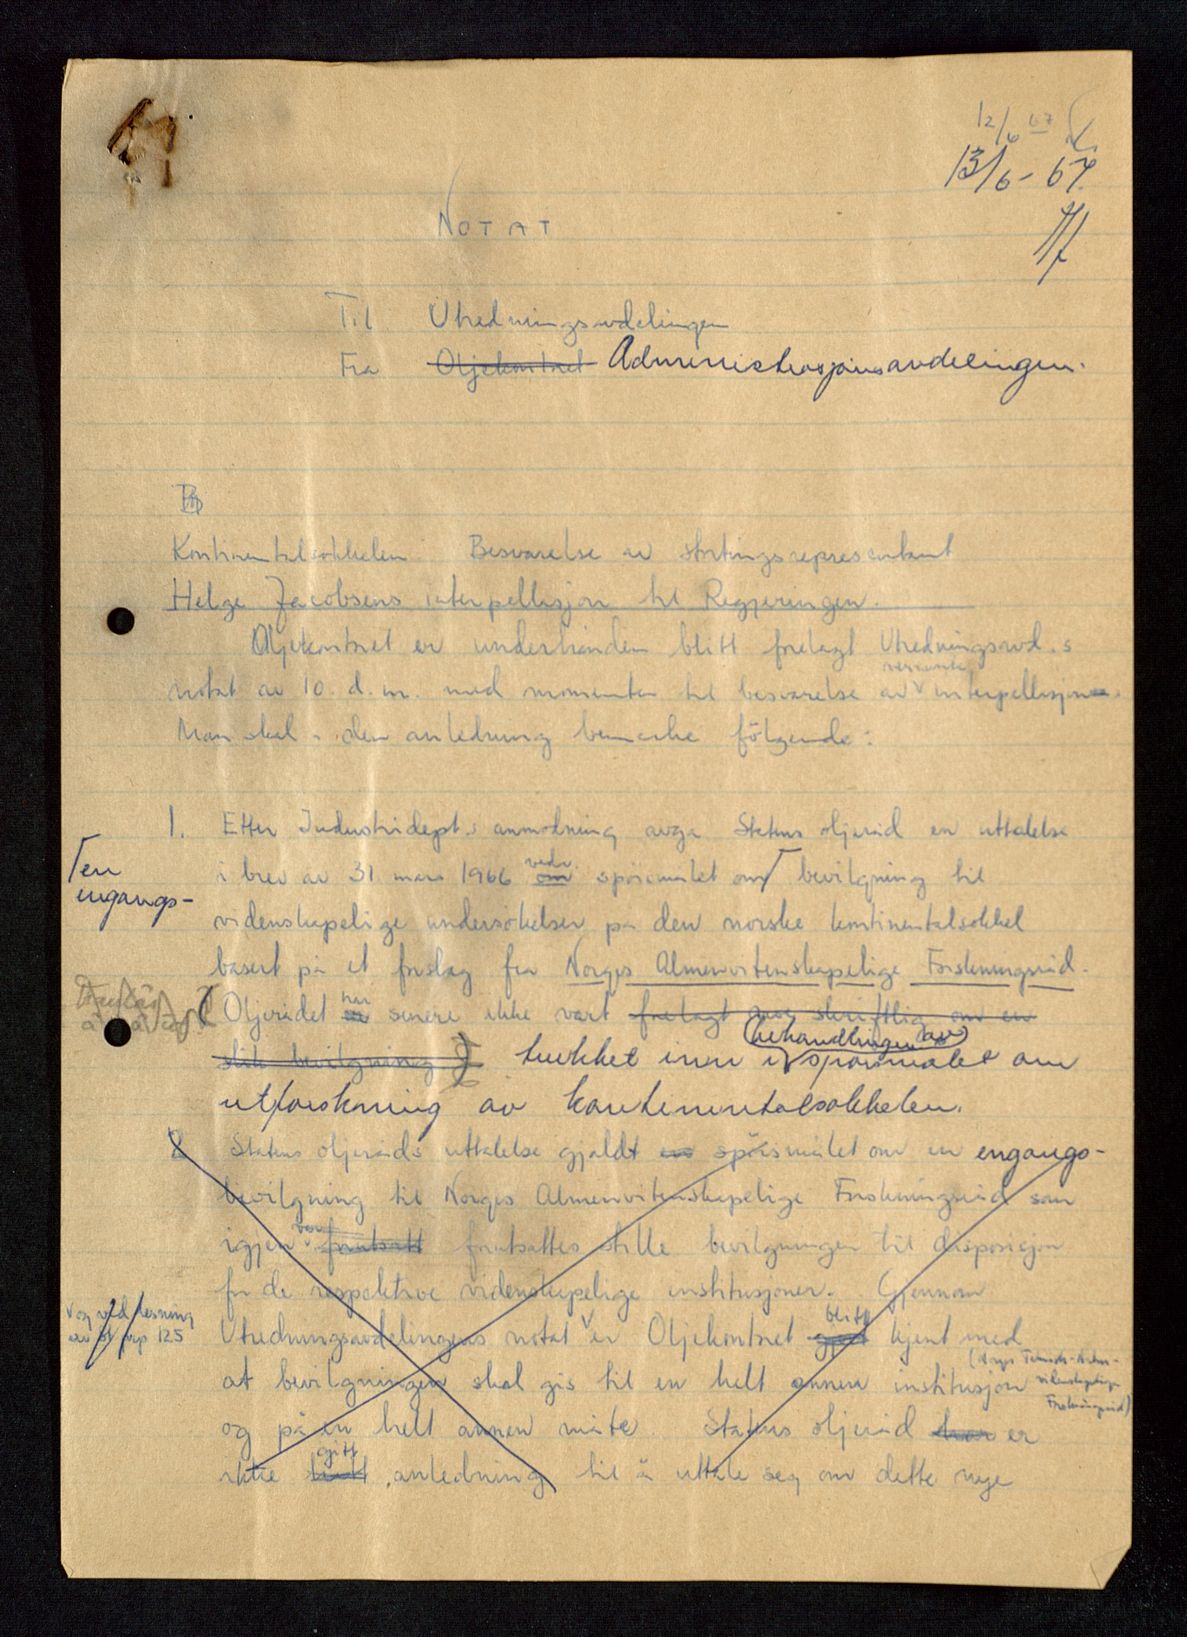 12/6 67
13/6- 67.
NOTAT
Til Utredningsavdelingen
Fra Oljekontoret Administrasjonsavdelingen.
Kontinentalsokkelen. Besvarelse av stortingsrepresentant
Helge Jacobsens interpellasjon til Regjeringen.
Oljekontoret er underhånden blitt forelagt Utredningsavd.s
nevnte
notat av 10. d.m. med momenter til besvarelse av interpellasjon.
Man skal i den anledning bemerke følgende:
1. Etter Industridept.s anmodning avga Statens oljeråd en uttalelse
en
engangs-
vedr.
i brev av 31. mars 1966 om spørsmålet om bevilgning til
videnskapelige undersøkelser på den norske kontinentalsokkel
basert på et forslag fra Norges Almenvitenskapelige Forskningsråd.
har
Oljerådet er senere ikke vært forelagt noe skriftlig om en
behandlingen av
slik bevilgning trukket inn i spørsmålet om
utforskning av kontinentalsokkelen.
2 Statens oljeråds uttalelse gjaldt en spørsmålet om en engangs-
bevilgning til Norges Almenvitenskapelige Forskningsråd som
igjen fortsatt forutsattes stille bevilgningen til disposisjon
for de respektive videnskapelige institusjoner. Gjennom
og ved lesning
av st prp 125
blitt
Utredningsavdelingens notat er Oljekontoret gjort kjent med
at bevilgningen skal gis til en helt annen institusjon
(Norges Teknisk-Natur-
videnskapelige
Forskningsråd)
og på en helt annen måte. Statens oljeråd har er
gitt
ikke hatt anledning til å uttale seg om dette nye